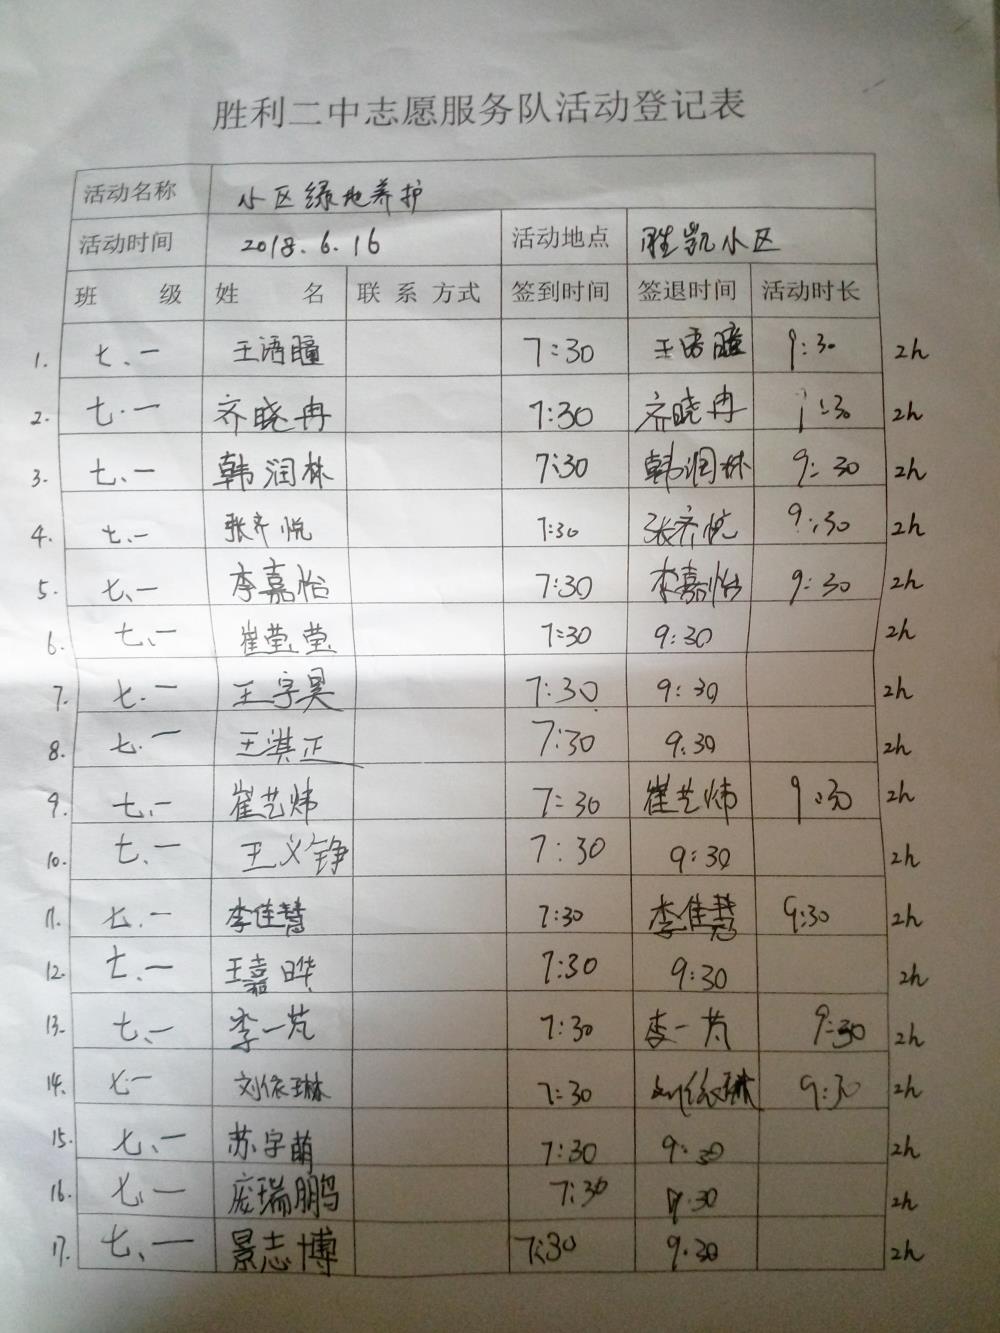 胜利二中志愿服务队活动登记表
活动名称 小区绿地养护
活动时间 2018.6.16 活动地点 胜凯小区
班 级 姓 名 联系方式 签到时间 签退时间 活动时长
1. 七、一 王语瞳 7:30 王语瞳 9:30 2h
2. 七.一 齐晓冉 7:30 齐晓冉 9:30 2h
3. 七、一 韩润林 7:30 韩润林 9:30 2h
4. 七、一 张齐悦 7:30 张齐悦 9:30 2h
5. 七、一 李嘉怡 7:30 李嘉怡 9:30 2h
6. 七、一 崔莹莹 7:30 9:30 2h
7. 七.一 王宇昊 7:30 9:30 2h
8. 七.一 王淇正 7:30 9:30 2h
9. 七、一 崔艺炜 7:30 崔艺炜 9:30 2h
10. 七、一 王义铮 7:30 9:30 2h
11. 七、一 李佳慧 7:30 李佳慧 9:30 2h
12. 七、一 王嘉晔 7:30 9:30 2h
13. 七、一 李一芃 7:30 李一芃 9:30 2h
14. 七一 刘依琳 7:30 刘依琳 9:30 2h
15. 七、一 苏宇萌 7:30 9:30 2h
16. 七、一 庞瑞鹏 7:30 9:30 2h
17. 七、一 景志博 7:30 9:30 2h